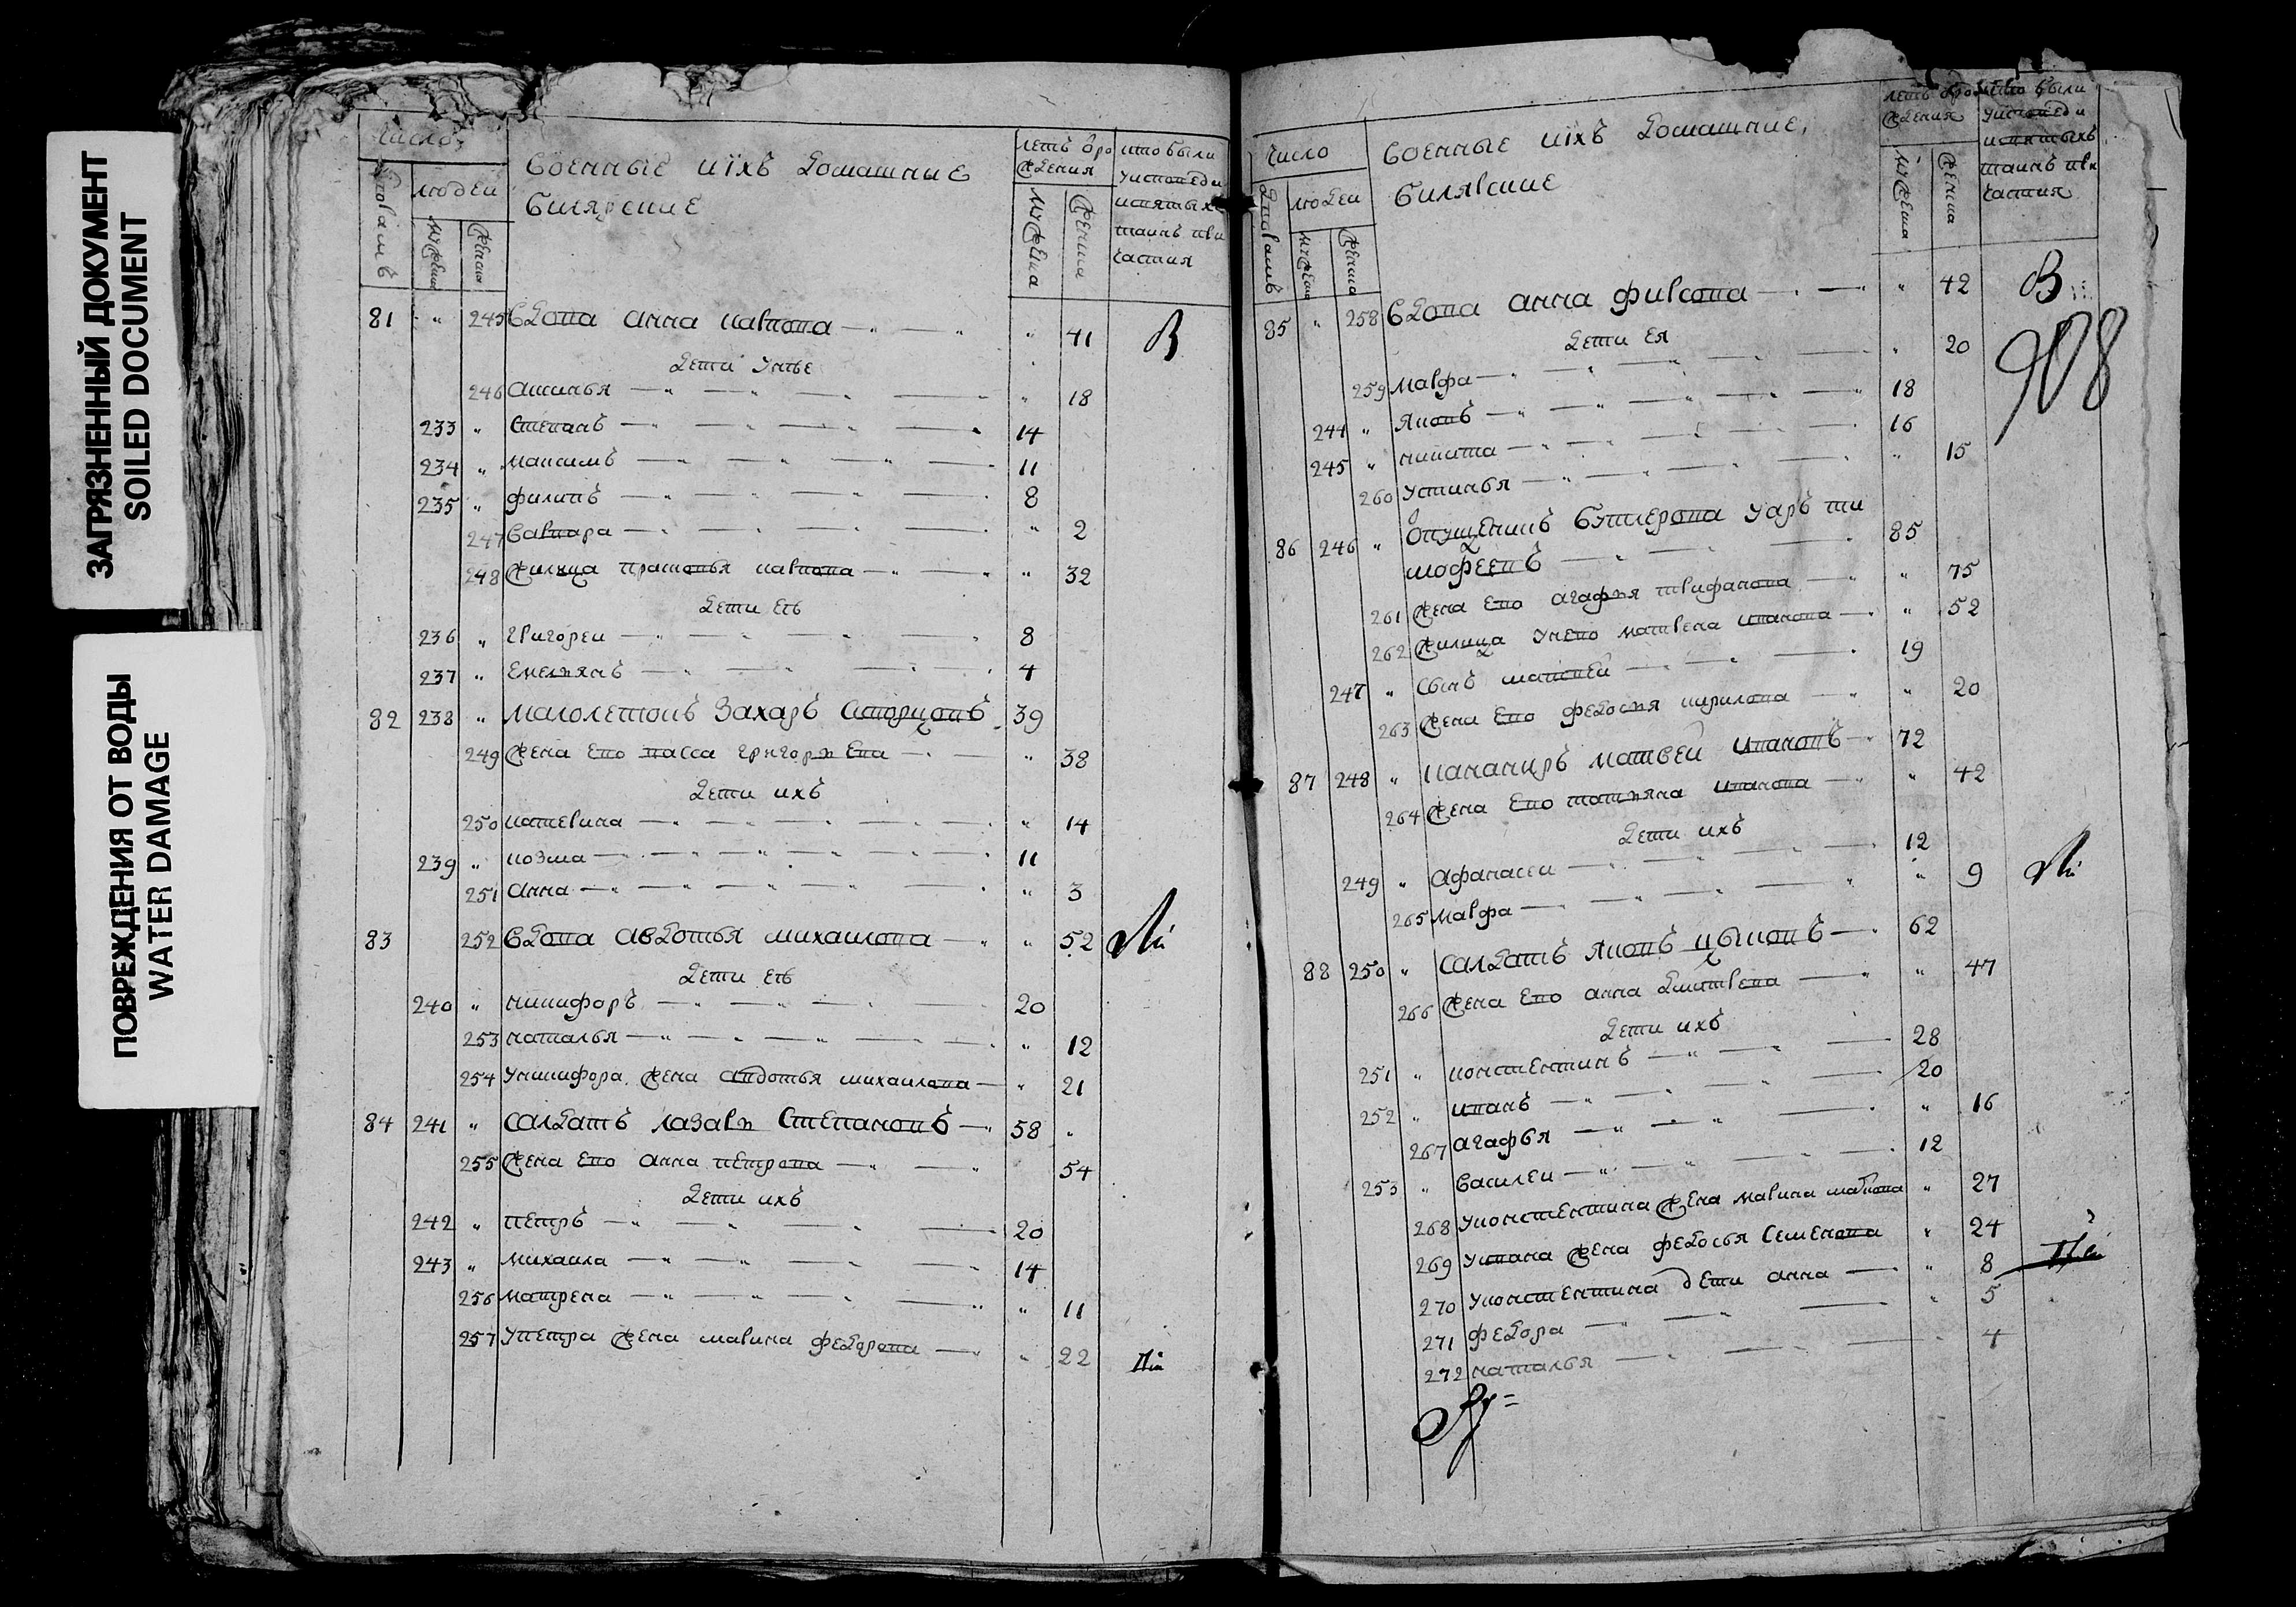 ЗАГРЯЗНЕННЫЙ ДОКУМЕНТ
SOILED DOCUMENT
ПОВРЕЖДЕНИЯ ОТ ВОДЫ
WATER DAMAGE
Число
дворамъ
людеи
мужеска
женска
военные ихъ домашние
билярские
летъ вро
жвения
мужеска
женска
кто были
уисповеди
исвятыхъ
таинъ при
частия
81 " 245 вдова анна карпова " 41 В
дети унее
246 аксинья " 18
233 " степанъ 14
234 " максимъ 11
235 " филипъ 8
247 варвара " 2
248 жилица прасковья карпова " 32
дети еѣ
236 " григореи 8
237 " емельянъ 4
82 238 " малолетокъ захаръ скворцовъ 39
249 жена ево васса григорьева " 38
дети ихъ
250 катерина " 14
239 " козма 11
251 анна " 3
83 252 вдова авдотья михаилова " 52
дети еѣ
240 " никифоръ 20
253 наталья " 12
254 уникифора жена авдотья михаилова " 21
84 241 " салдатъ лазарь степановъ 58 "
255 жена ево анна петрова 54
дети ихъ
242 " петръ 20
243 " михаила 14
256 матрена " 11
257 упетра жена марина федорова " 22
Число
дворамъ
людеи
мужеска
женска
военные ихъ домашние
билярские
летъ вро
ждения
мужеска
женска
кто были
уисповеди
исвятыхъ
таинъ при
частия
85 " 258 вдова анна фирсова " 42 В
908
дети ея
259 марфа " 20
244 " яковъ 18
245 " никита 16
260 устинья " 15
86 246 " опущеникъ бутлерова уаръ ти
мофеевъ 85
261 жена ево агафья трифанова " 75
262 жилица унево матрена иванова " 52
247 " сынъ матвей 19
263 жена ево федосья кирилова " 20
87 248 " кананиръ матвеи ивановъ 72
264 жена ево татьяна иванова " 42
дети ихъ
249 " афанасеи 12
265 марфа " 9
88 250 " салдатъ яковъ 62
266 жена ево анна дмитрева " 47
дети ихъ
251 " констентинъ 28
252 " иванъ 20
267 агафья " 16
253 " василеи 12
268 уконстентина жена марина " 27
269 уивана жена федосья семенова " 24
270 уконстентина дети анна " 8
271 федора " 5
272 наталья 4